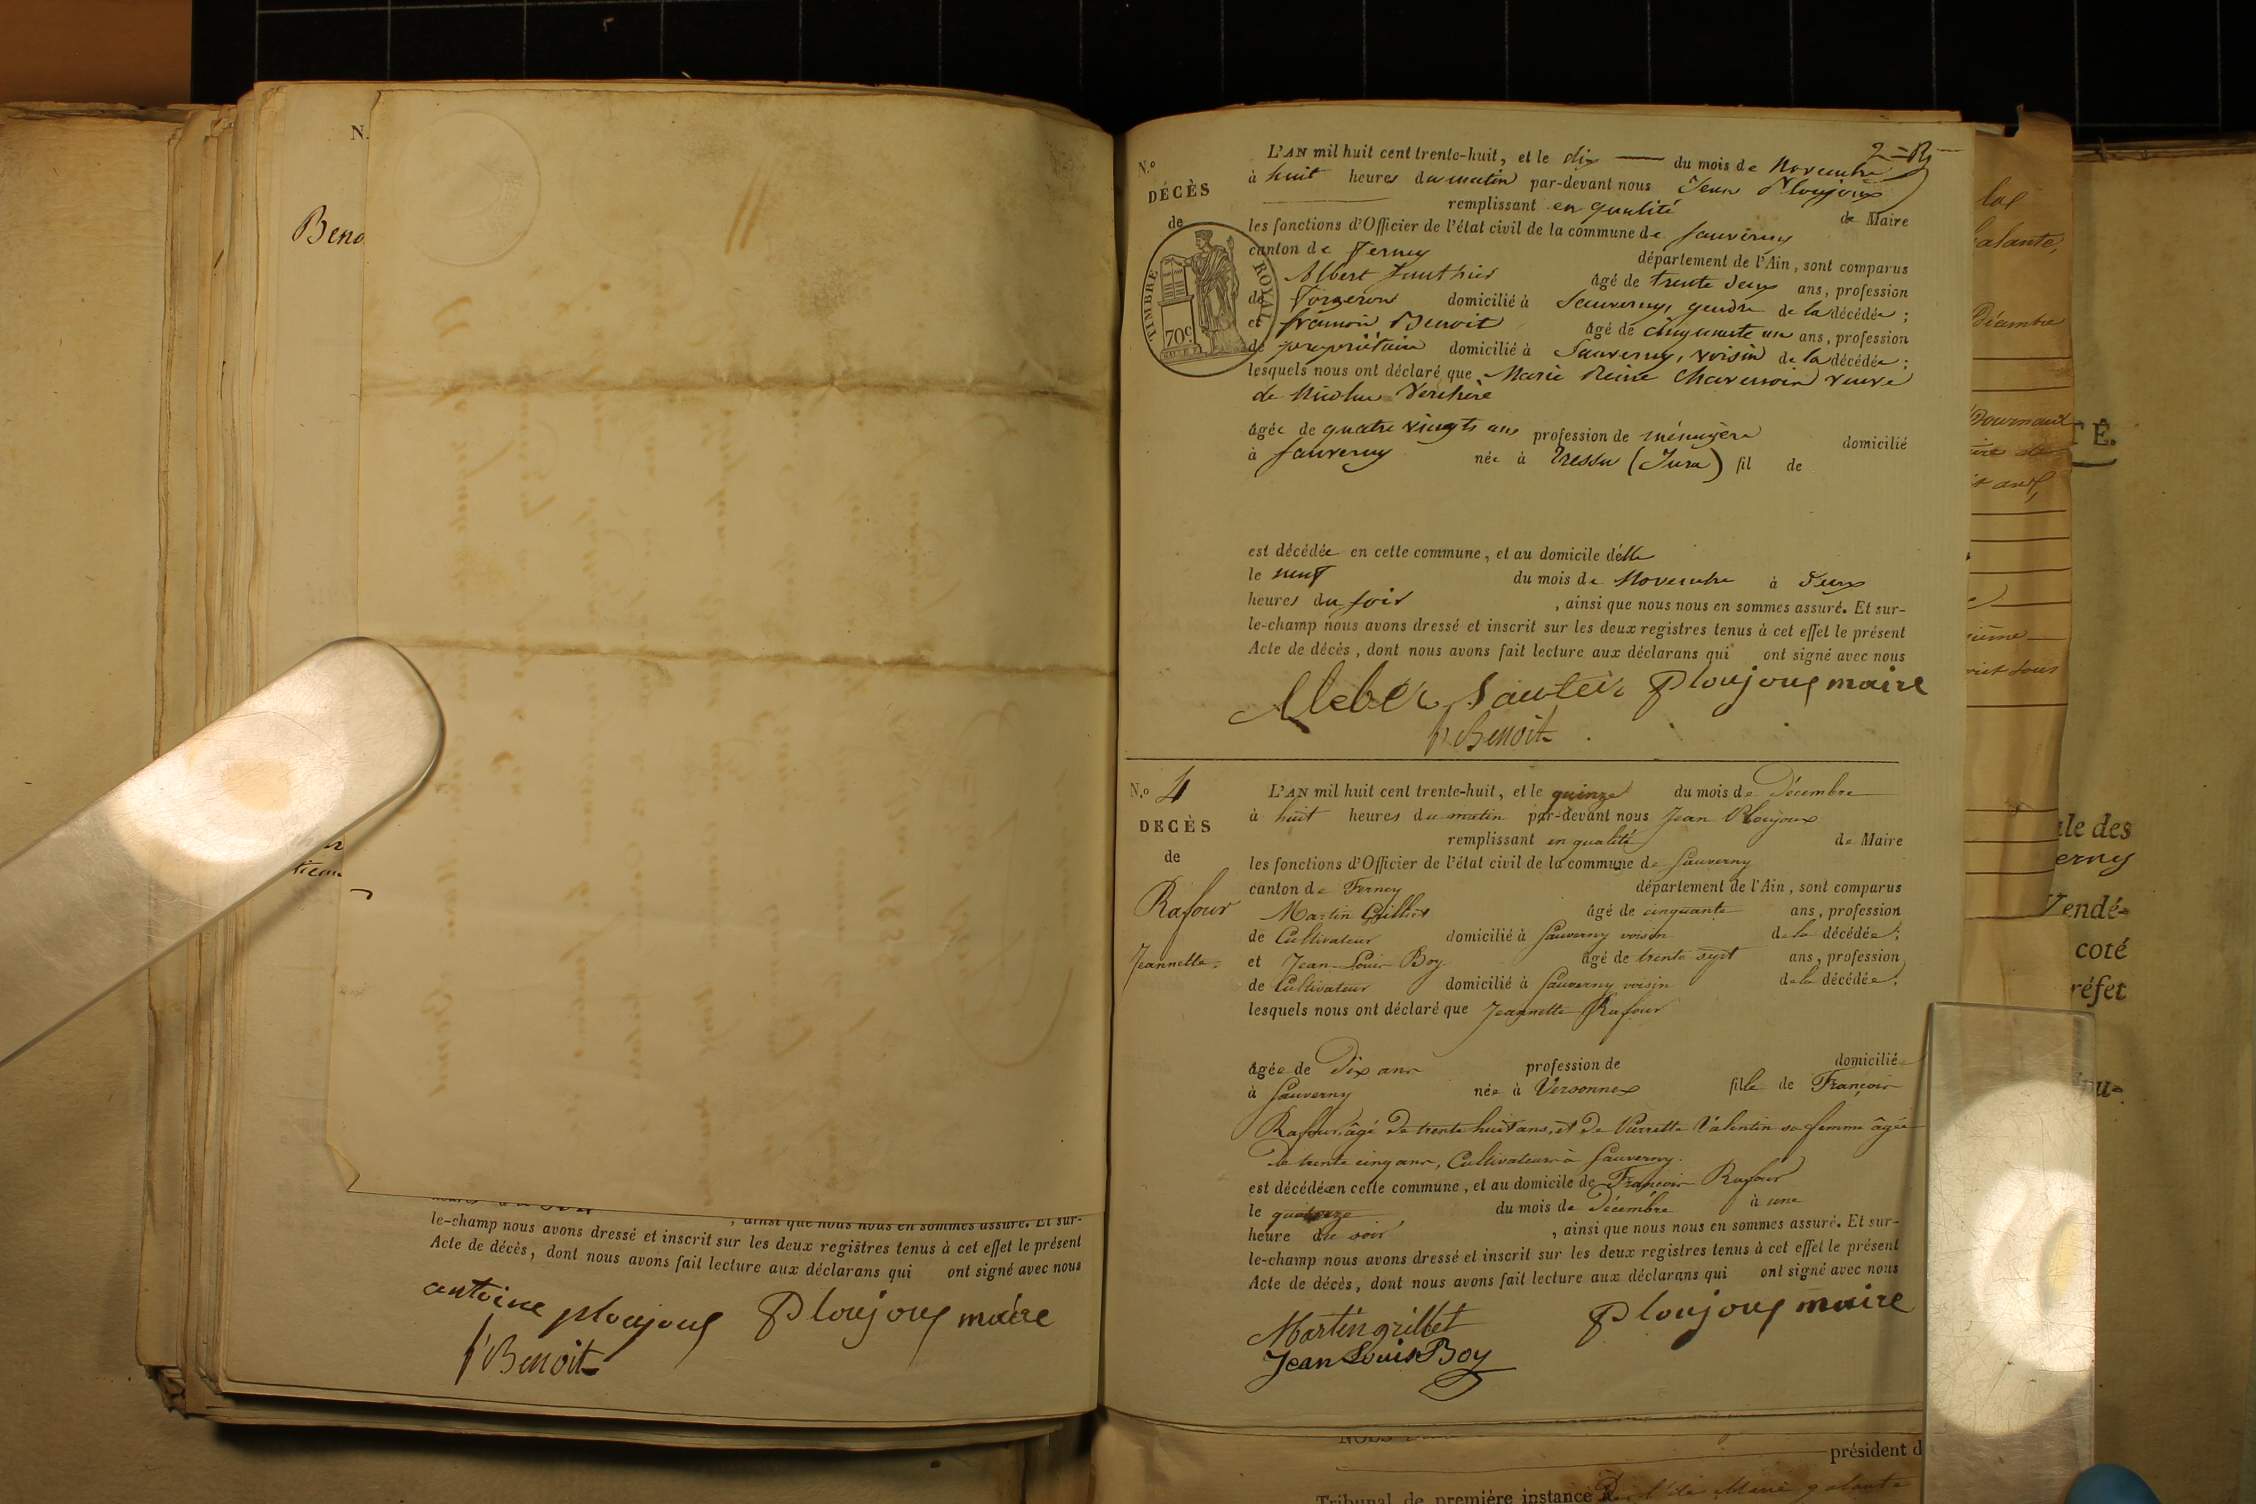 N.
Beno
le-champ nous avons dressé et inscrit sur les deux registres tenus à cet effet le présent
Acte de décès, dont nous avons fait lecture aux déclarans qui ont signé avec nous
antoine ploujoux Ploujoux maire
f Benoit
2=R
N.º
DÉCÈS
de
TIMBRE ROYAL
70c
L'AN mil huit cent trente-huit, et le dix du mois de Novembre
à huit heures du matin par-devant nous Jean Ploujoux
remplissant en qualité de Maire
les fonctions d'Officier de l'état civil de la commune de Sauverny
canton de Ferney département de l'Ain, sont comparus
Albert Sauthier âgé de trente deux ans, profession
de Forgeron domicilié à Sauverny, gendre de la décédée;
et françois Benoit âgé de cinquante un ans, profession
de propriétaire domicilié à Sauverny, voisin de la décédée;
lesquels nous ont déclaré que Marie Reine veuve
de Nicolas
âgée de quatre vingts ans profession de ménagère domicilié
à Sauverny née à (Jura) fil de
est décédée en cette commune, et au domicile d'elle
le neuf du mois de Novembre à deux
heures du soir, ainsi que nous nous en sommes assuré. Et sur-
le-champ nous avons dressé et inscrit sur les deux registres tenus à cet effet le présent
Acte de décès, dont nous avons fait lecture aux déclarans qui ont signé avec nous
Ploujoux maire
f Benoit
N.º 4
DECÈS
de
Rafour
Jeannette
L'AN mil huit cent trente-huit, et le quinze du mois de Décembre
à huit heures du matin par-devant nous Jean Ploujoux
remplissant en qualité de Maire
les fonctions d'Officier de l'état civil de la commune de Sauverny
canton de Ferney département de l'Ain, sont comparus
Martin Grillet âgé de cinquante ans, profession
de Cultivateur domicilié à Sauverny voisin de la décédée;
et Jean-Louis Boy âgé de trente sept ans, profession
de Cultivateur domicilié à Sauverny voisin de la décédée;
lesquels nous ont déclaré que Jeannette Rafour
âgée de Dix ans profession de domiciliée
à Sauverny née à Versonnex fille de François
Rafour, âgé de trente huit ans, et de Pierrette Valentin sa femme âgée
de trente cinq ans, Cultivateurs à Sauverny.
est décédée en cette commune, et au domicile de François Rafour
le quatorze du mois de Décembre à une
heure du soir, ainsi que nous nous en sommes assuré. Et sur-
le-champ nous avons dressé et inscrit sur les deux registres tenus à cet effet le présent
Acte de décès, dont nous avons fait lecture aux déclarans qui ont signé avec nous
Martin grillet Ploujoux maire
Jean Louis Boy
président d
Tribunal de première instance